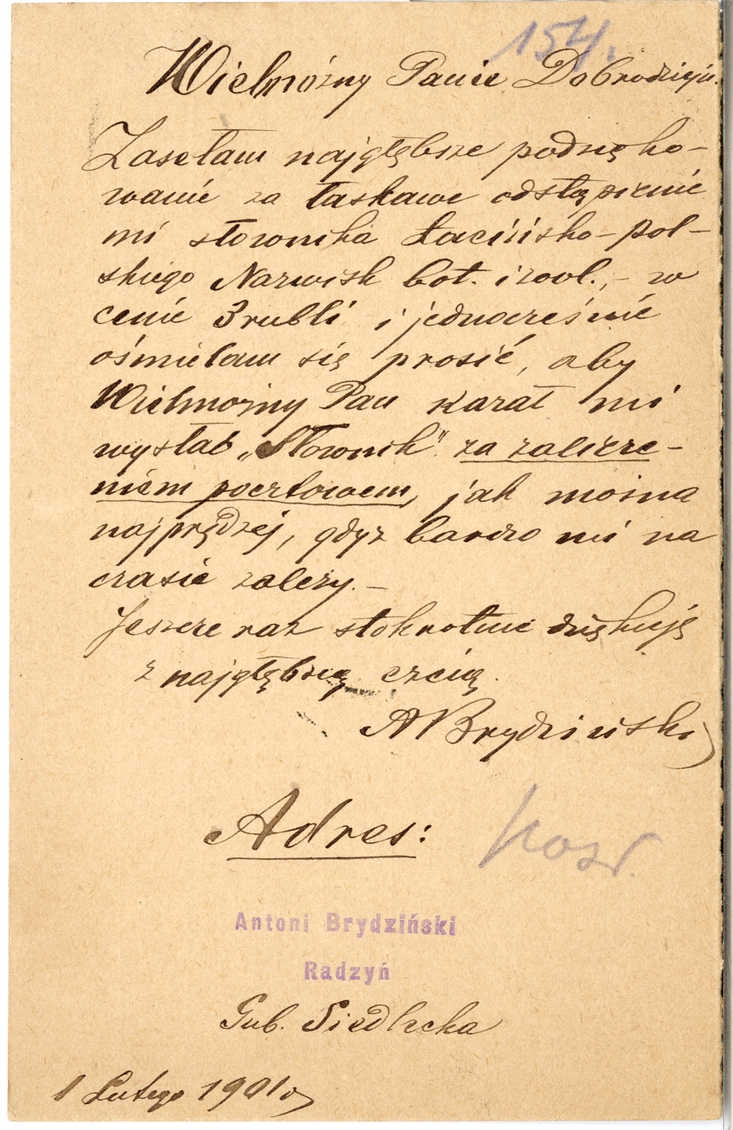 154.
Wielmożny Panie Dobrodzieju.
Zasełam najgłębsze podzięko-
wanie za łaskawe odstąpienie
mi słownika Łacińsko-pol-
skiego Nazwisk bot. i zool., - w
cenie 3 rubli i jednocześnie
ośmielam się prosić, aby
Wielmożny Pan kazał mi
wysłać „Słownik” za zalicze-
niem pocztowem, jak można
najprędzej, gdyż bardzo mi na
czasie zależy. -
Jeszcze raz stokrotnie dziękuję
z najgłębszą czcią.
ABrydziński
Adres:
Antoni Brydziński
Radzyń
Gub. Siedlecka
1 Lutego 1901 r